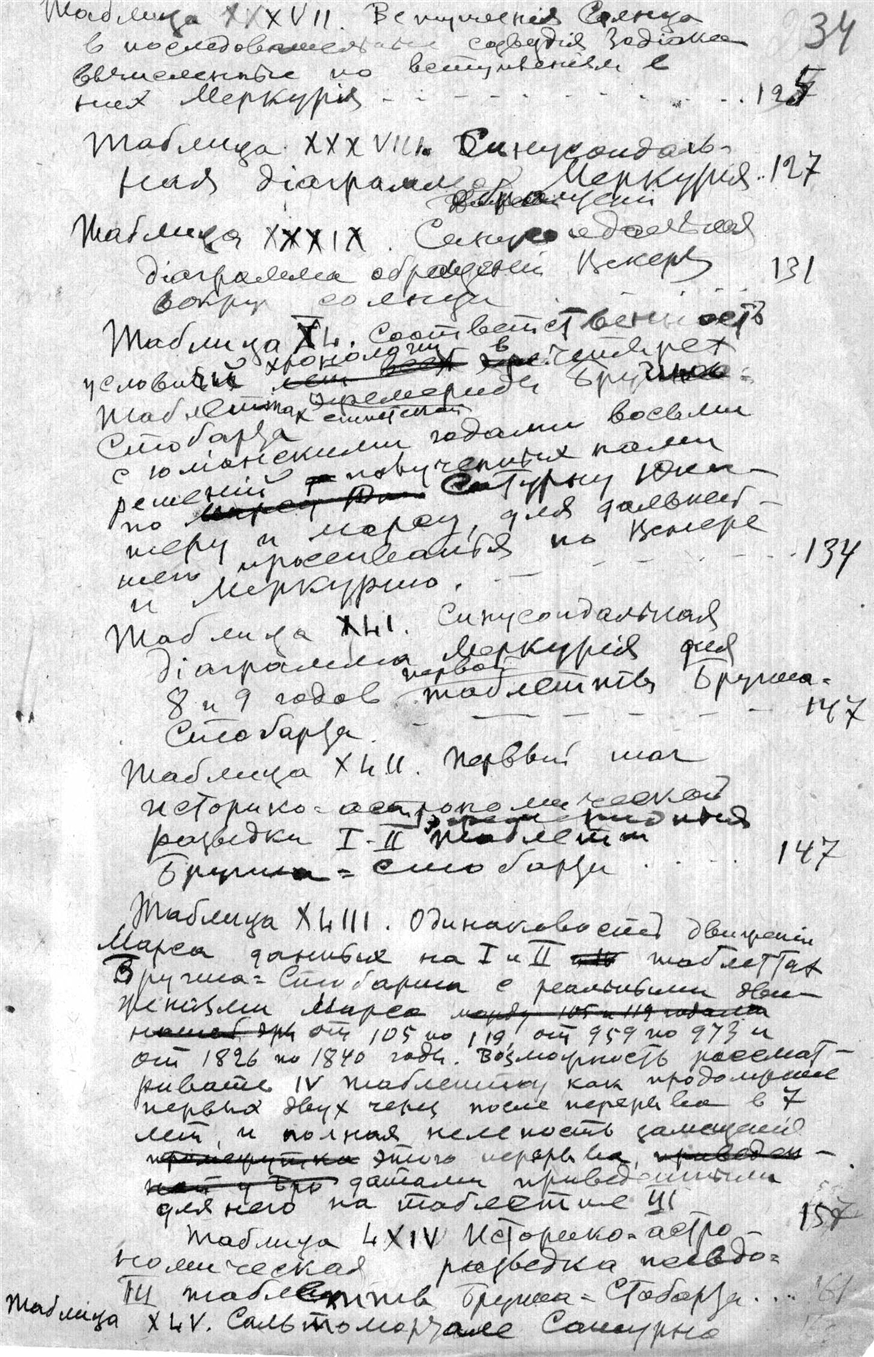 34
Таблица XXXVII. Вступленія Солнца
в последовательные созвездія Зодіака
вычисленные по вступленіям в
них Меркурія . . . . . . 125
Таблица XXXVIII. Синусоидаль-
ная діаграмма Меркурія . . 127
обращеній
Таблица XXXIX. Синусоидальная
діаграмма обращеній Венеры 131
вокруг солнца
Таблица XL. Соответственность
условных хронологий в четырех
таблетках эфемериды Бругша=
Стобарта египетской
с юліанскими годами восьми
решений полученных нами
по Сатурну Юпи-
теру и Марсу, для дальней-
шего просеивания по Венере
и Меркурію. - - - - - 134
Таблица XLI. Синусоидальная
діаграмма Меркурія для
8 и 9 годов первой таблетки Бругша=
Стобарта. - - - - - 147
Таблица XLII. Первый шаг
историко=астрономической
разведки I-II таблетки
Бругша=Стобарта . . . . 147
Таблица XLIII. Одинаковость движеній
Марса данных на I и II таблетках
Бругша=Стобарта с реальными дви-
женіями Марса между 105 и 119 годами
нашей эры от 105 по 119, от 959 по 973 и
от 1826 по 1840 годы. Возможность рассмат-
ривать IV таблетку как продолжение
первых двух через после перерыва в 7
лет, и полная нелепость замещения
промежутка этого перерыва, приведен-
ной у Бру датами приведенными
для него на таблетке III 157
Таблица LXIV Историко=астро-
номическая разведка псевдо=
III таблетки Бругша=Стобарта... 161
Таблица XLV. Сальтомортале Сатурна